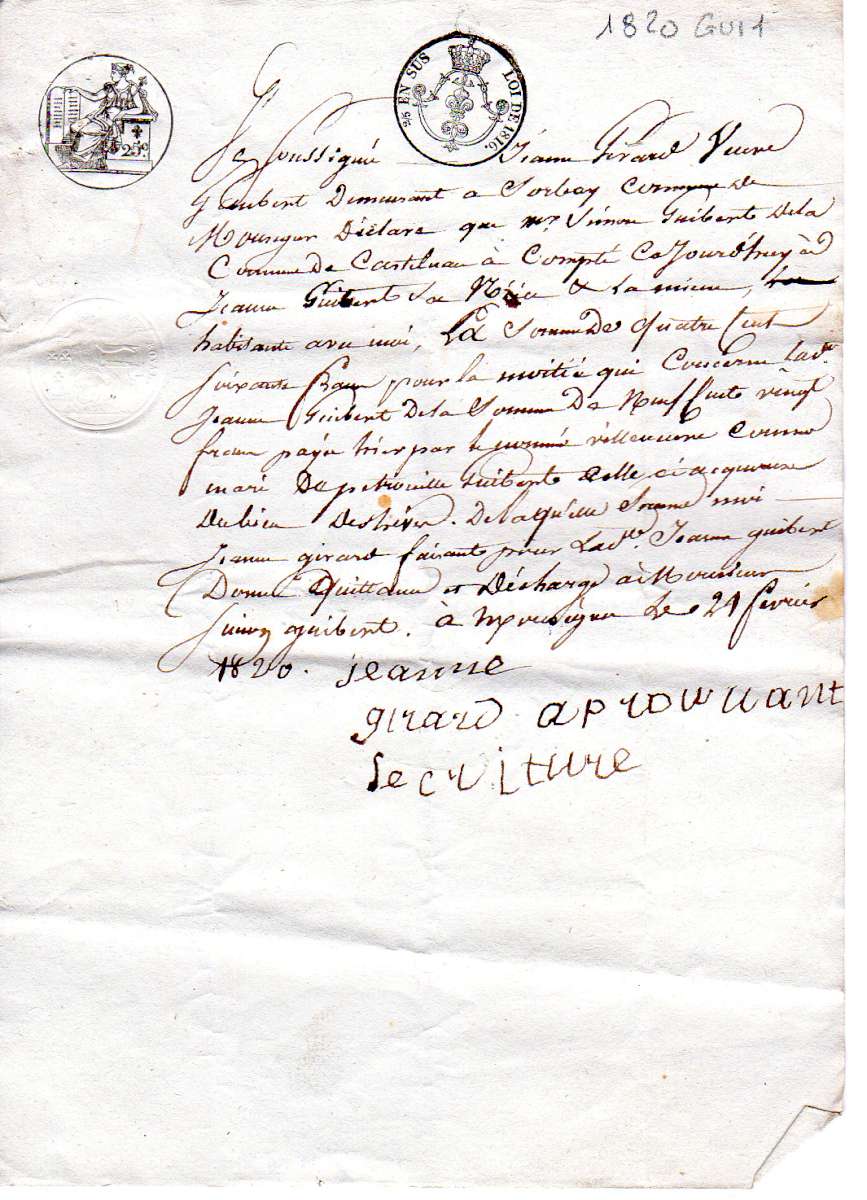 1820 GUI1
25 EN SUS LOI DE 1816.
25c.
Je Soussigné Jeanne Girard Veuve
Guibert Demeurant a Sorbey Commune de
Mouzigue Déclare que mr. Simon Guibert Dela
Commune De Castelnau à Compté Cejourd'huy à
Jeanne Guibert Sa Nièce & la mienne,
habitante avec moi, La Somme De Quatre Cent
Soixante francs pour la moitié qui Concerne Ladte.
Jeanne Guibert Dela Somme De Neuf Cents vingt
francs payée hier par le nommé villeneuve Comme
mari De petronille Guibert Celle ci acquereuse
De la quelle Somme moi
Jeanne girard faisante pour Ladte. Jeanne guibert
Donne Quittance et Décharge à Monsieur
Simon guibert. à Mouzigue Le 21 fevrier
1820. jeanne
girard aprouvant
lecriture